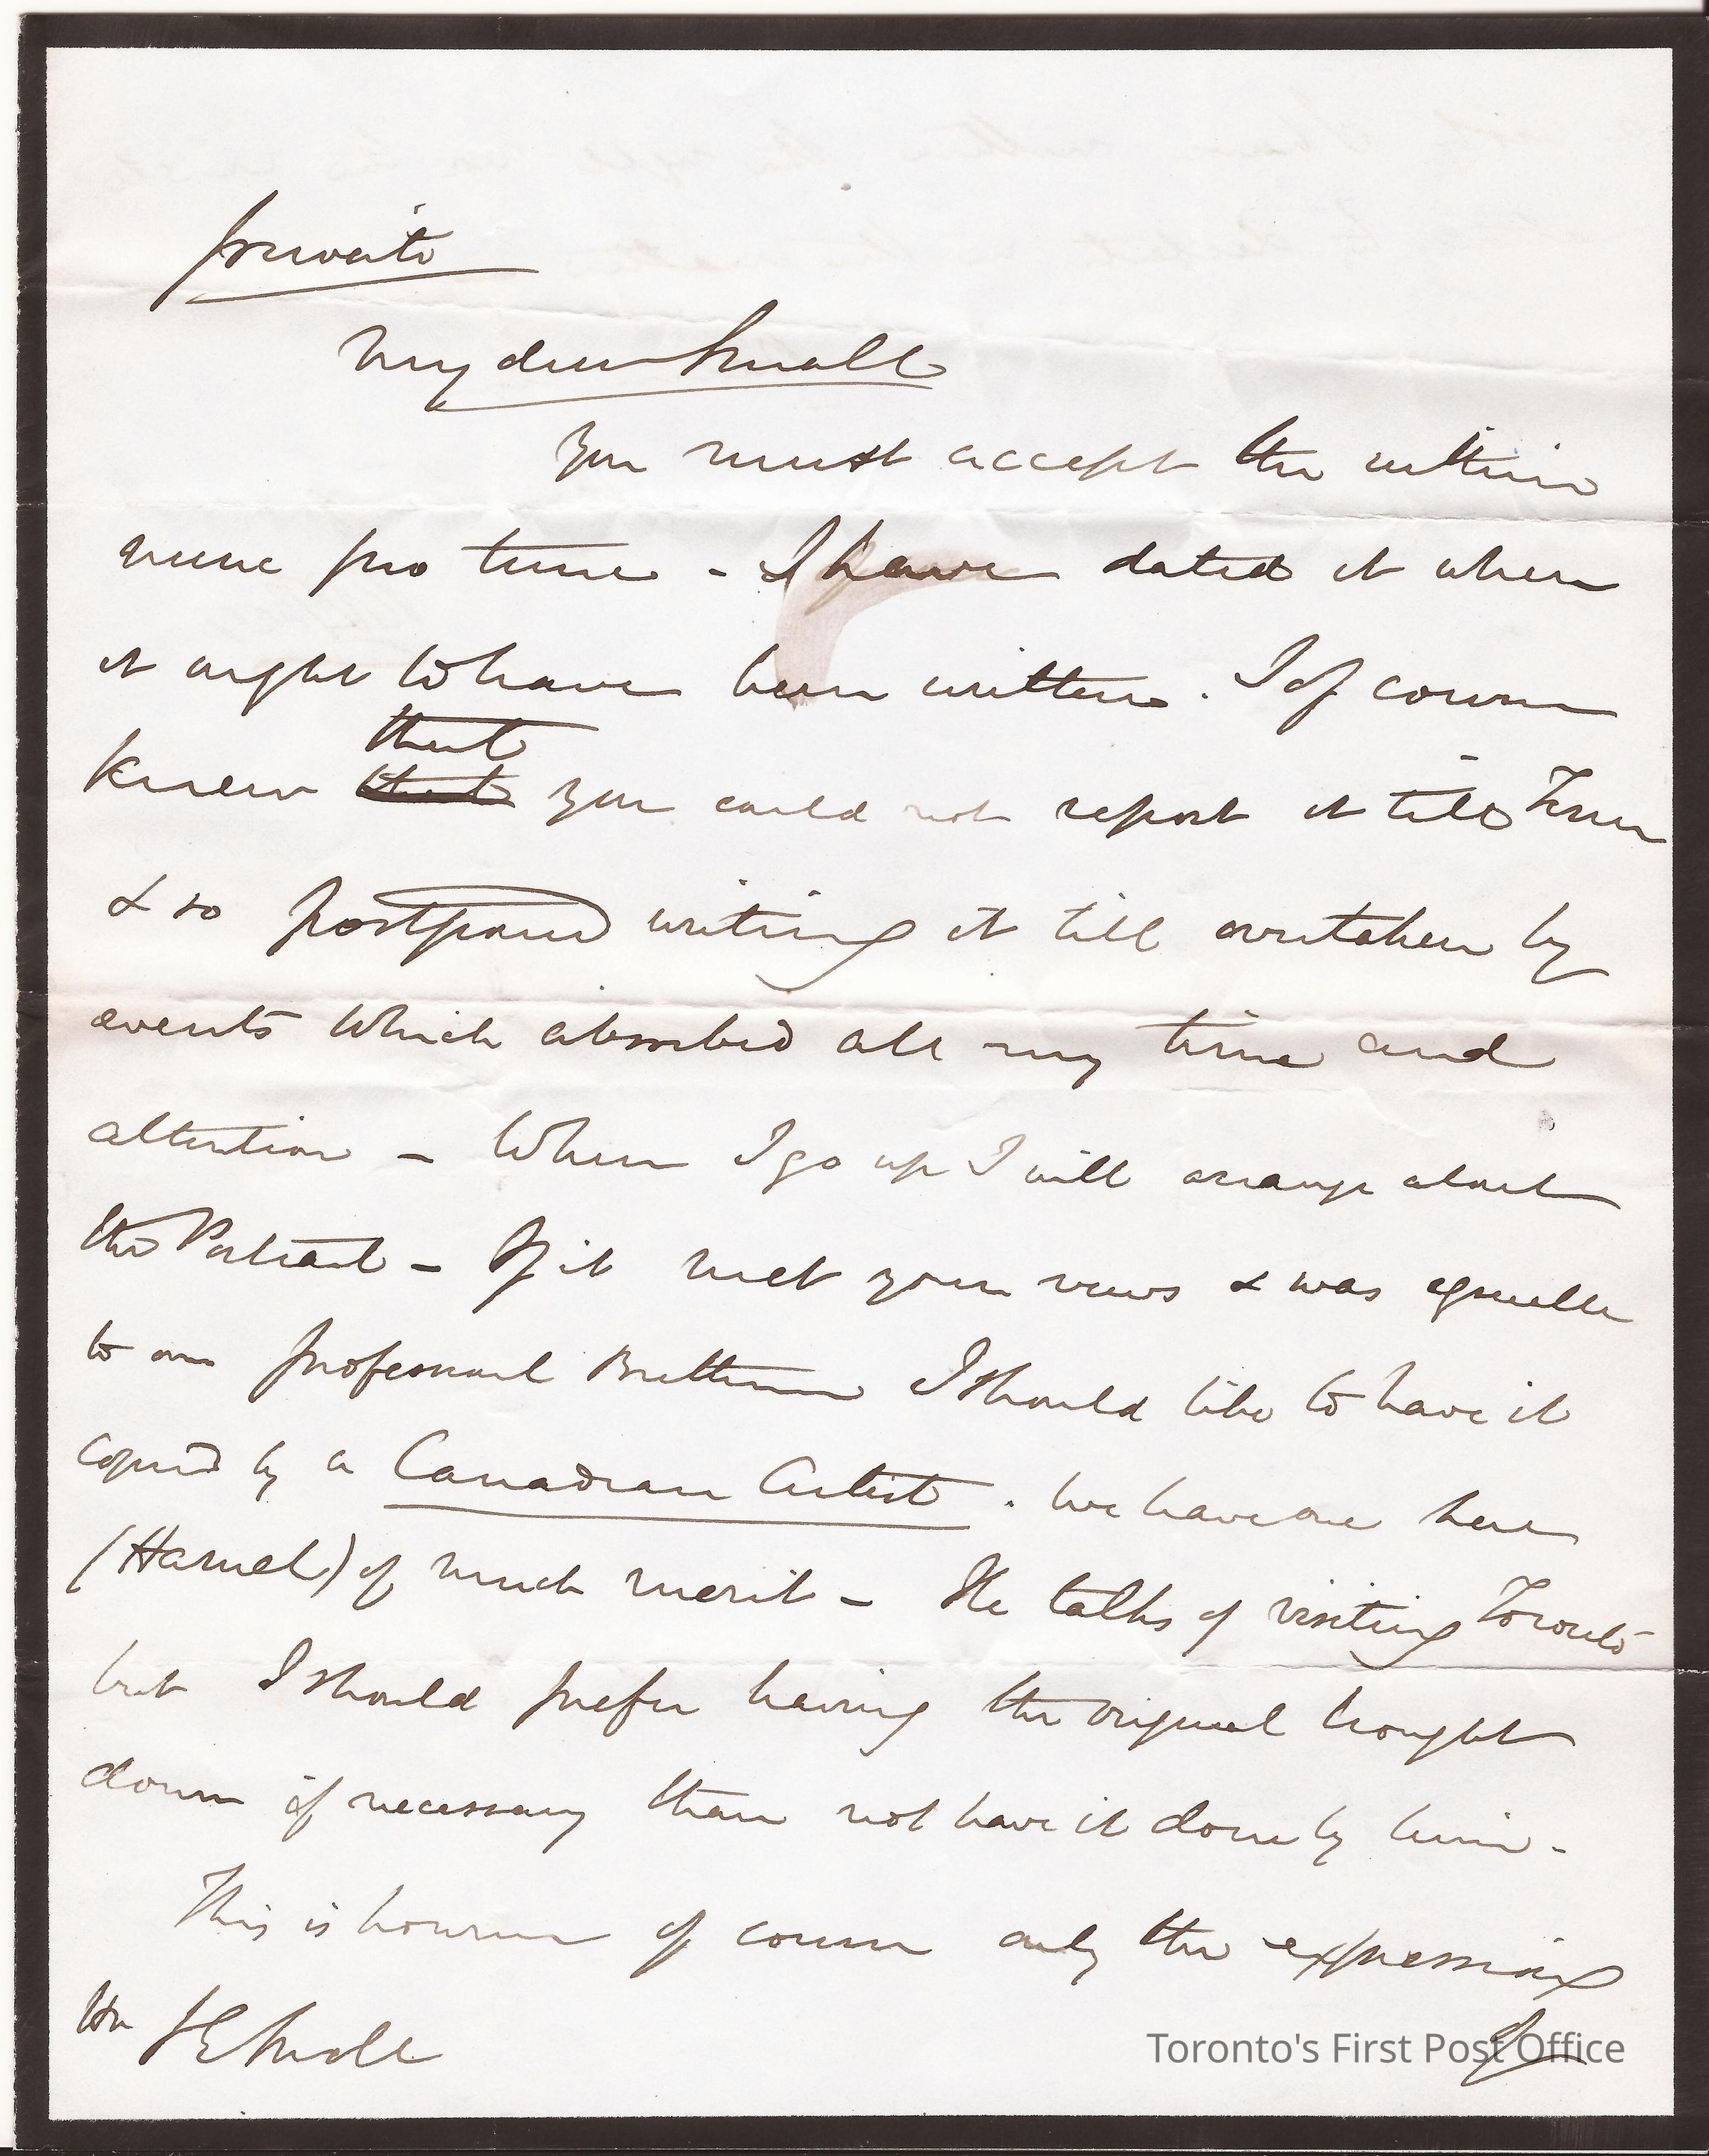 private
My dear Small
You must accept the within
nunc pro tunc - I have dated it when
it ought to have been written. I of course
knew that
that you could not report it till Term
& so postponed writing it till overtaken by
events which absorbed all my time and
attention - When I go up I will arrange about
the Portrait - If it met your views & was agreeable
to our professional Brethren I should like to have it
copied by a Canadian Artist. We have one here
(Hamel) of much merit - He talks of visiting Toronto
but I should prefer having the original brought
down if necessary than not have it done by him -
This is however of course only the expression
of
Hon J E Small
Toronto's First Post Office